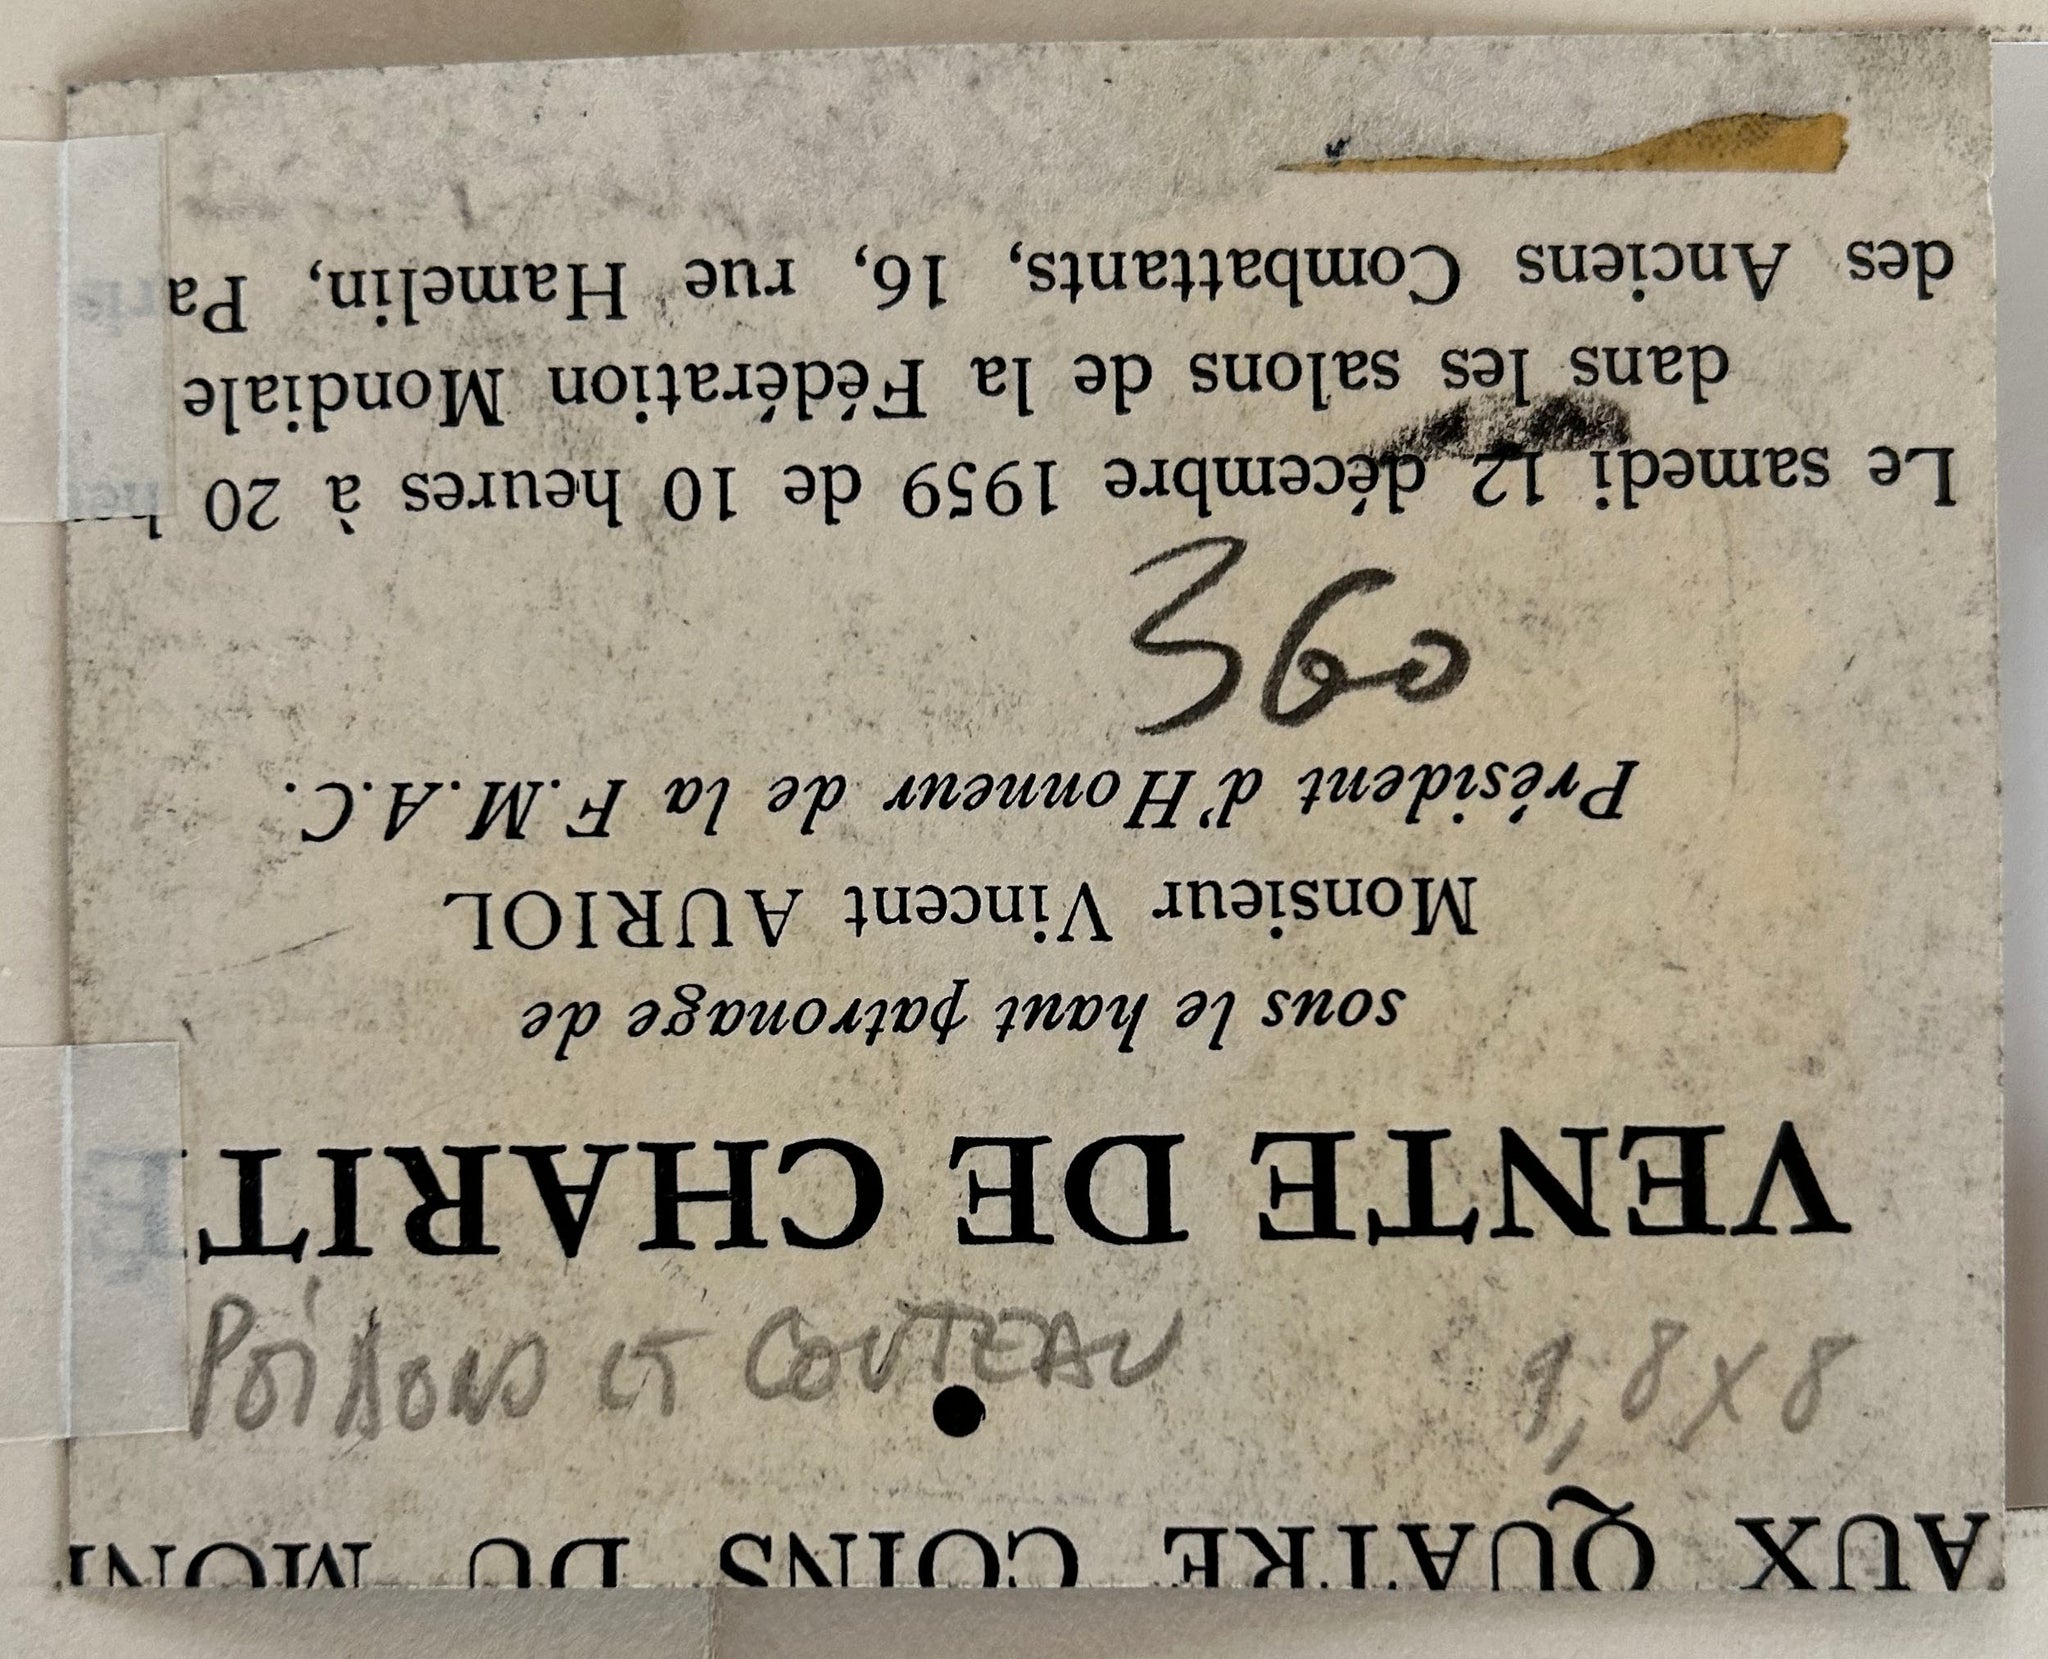 AUX QUATRE COINS DU MON
POISSONS ET COUTEAU 9,8 x 8
VENTE DE CHARITÉ
sous le haut patronage de
Monsieur Vincent AURIOL
Président d'Honneur de la F.M.A.C.
360
Le samedi 12 décembre 1959 de 10 heures à 20 he
dans les salons de la Fédération Mondiale
des Anciens Combattants, 16, rue Hamelin, Paris